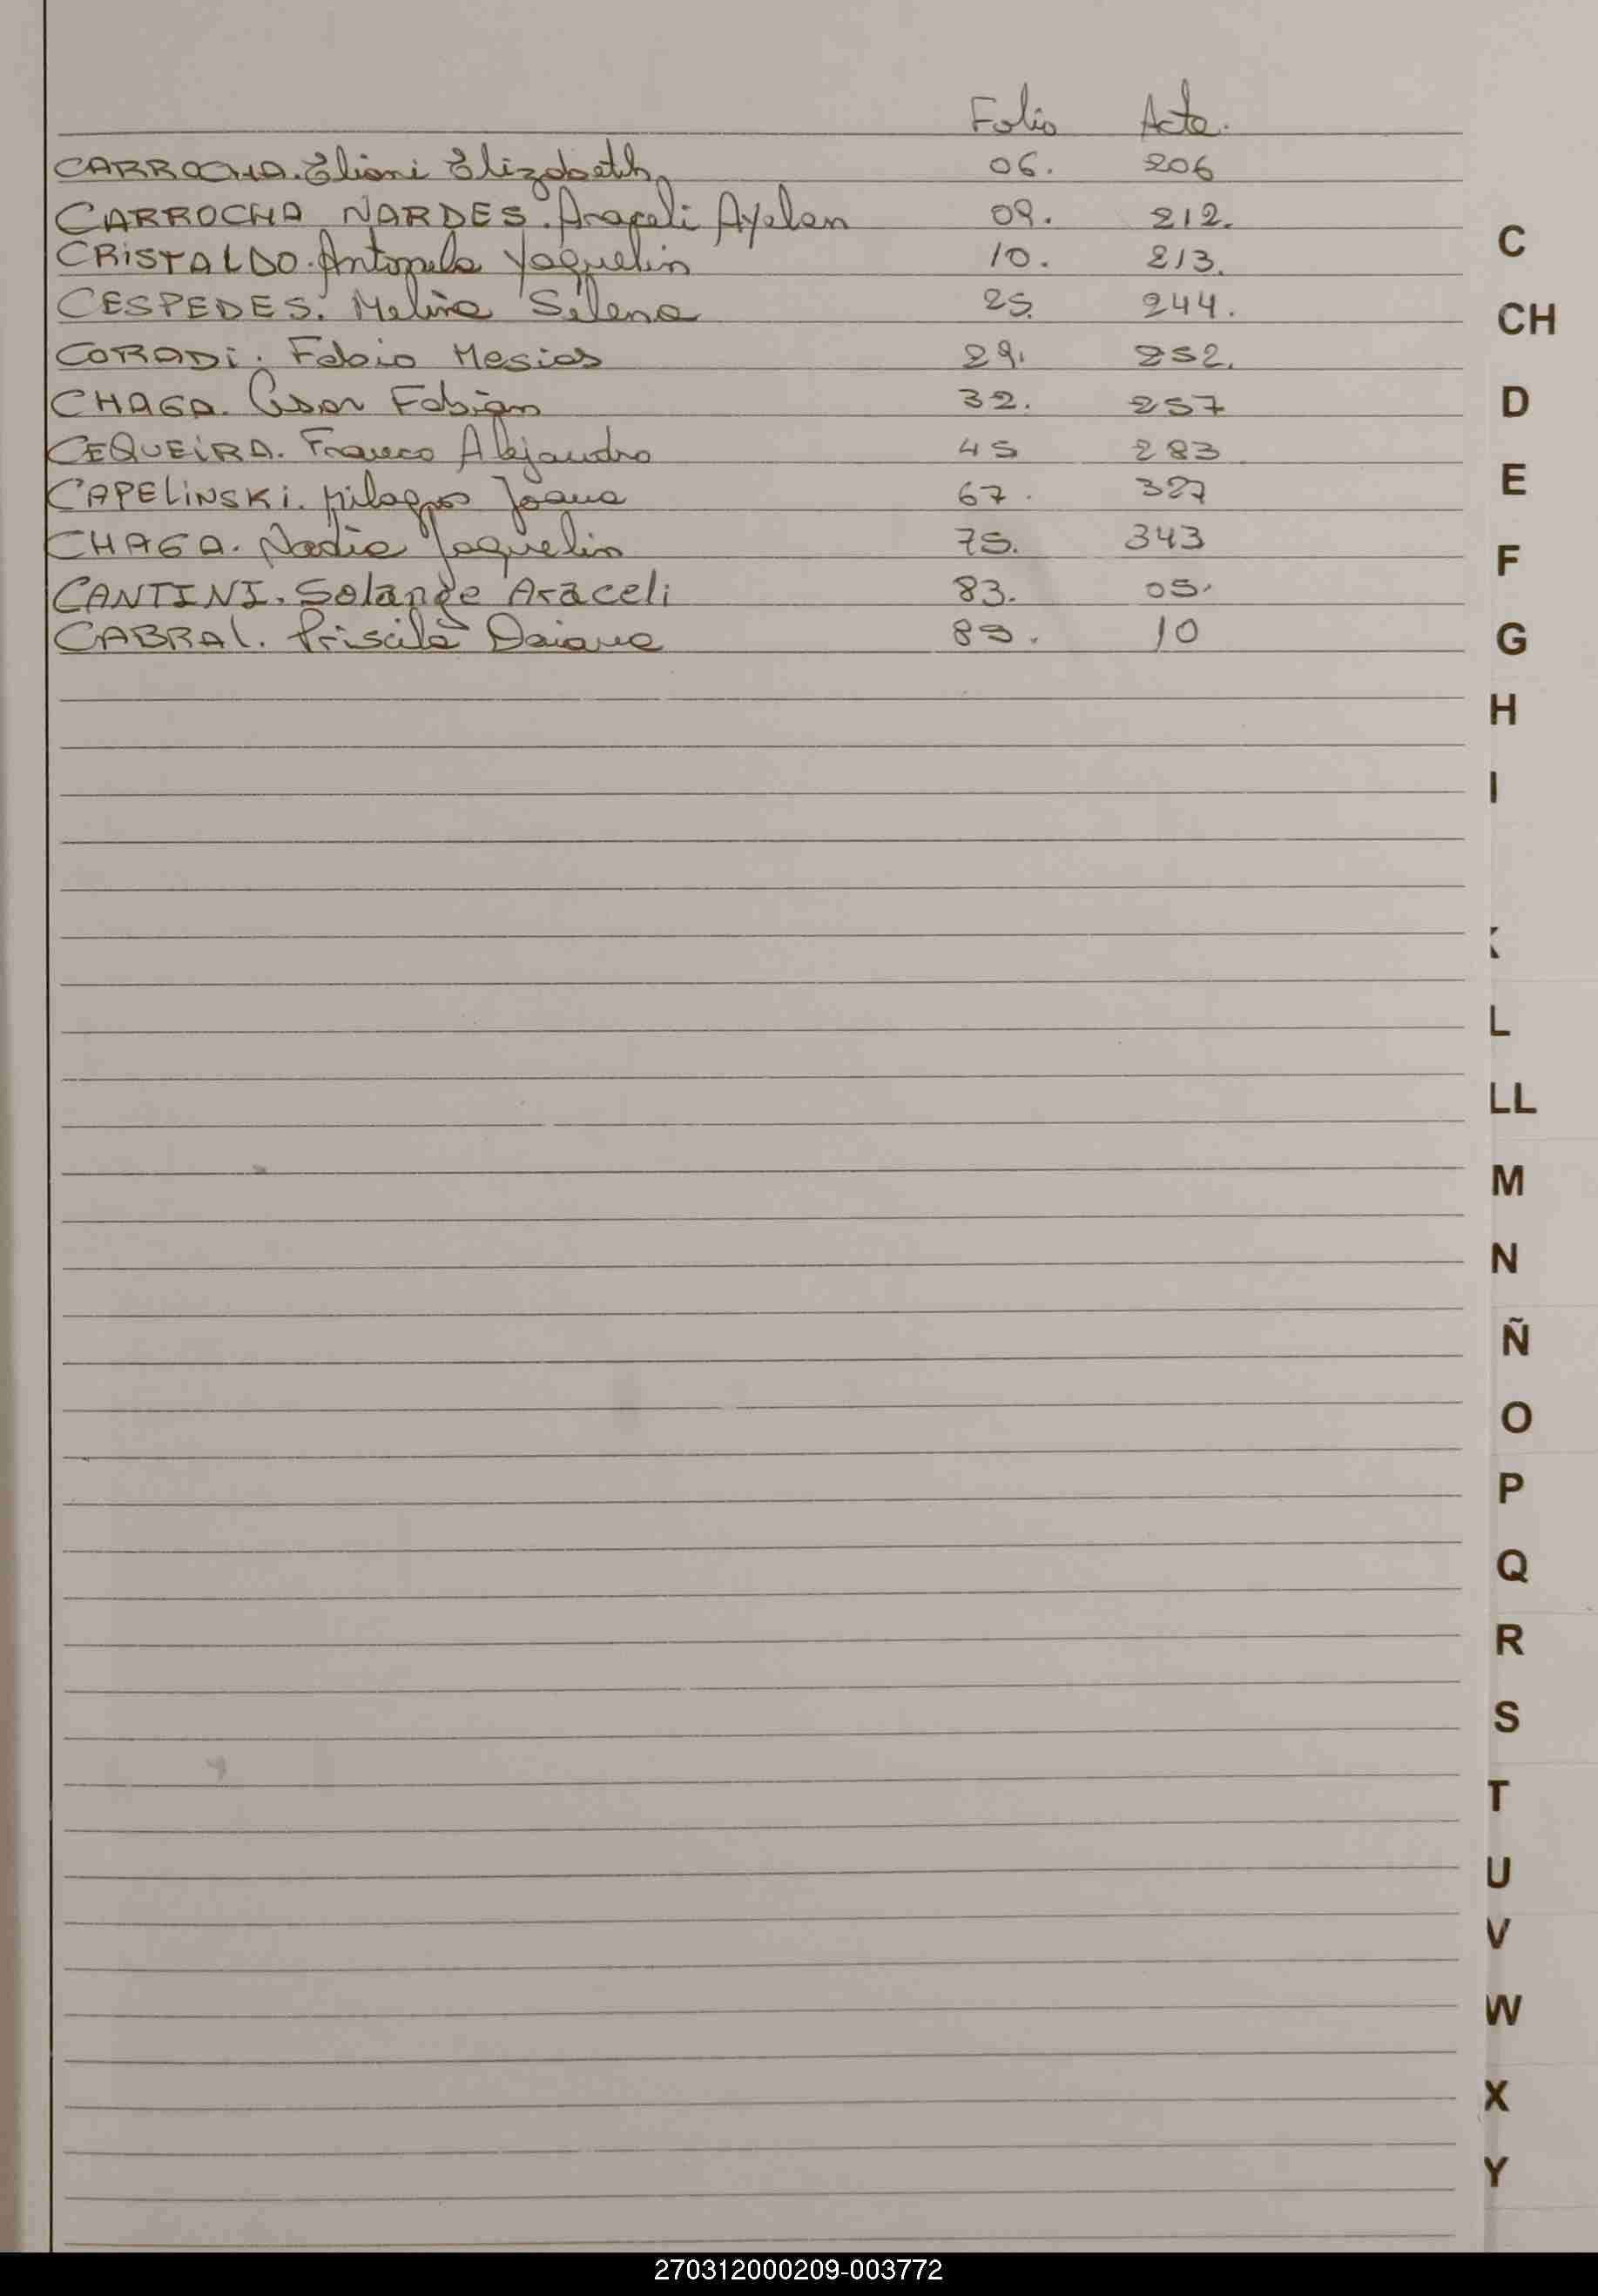 Folio Acta.
CARROCHA. Eliani Elizabeth 06. 206
CARROCHA NARDES. Araceli Ayelen 09. 212.
CRISTALDO. Antonela Yaquelin 10. 213.
CESPEDES. Melina Selena 25. 244.
CORADI. Fabio Mesias 29. 252.
CHAGA. Cesar Fabián 32. 257
CEQUEIRA. Franco Alejandro 45 283
CAPELINSKI. Milagros Joana 67. 327
CHAGA. Nadia Jaquelin 75. 343
CANTINI. Solange Araceli 83. 05.
CABRAL. Priscila Daiana 85. 10
C
CH
D
E
F
G
H
I
K
L
LL
M
N
Ñ
O
P
Q
R
S
T
U
V
W
X
Y
270312000209-003772